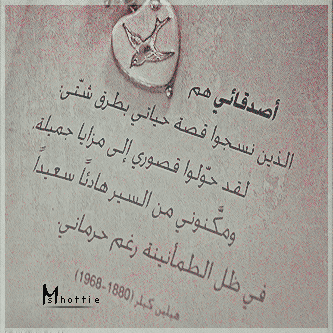 أصدقائي هم
الذين نسجوا قصة حياتي بطرق شتّى.
لقد حوّلوا قصوري إلى مزايا جميلة،
ومكَّنوني من السير هادئًا سعيدًا
في ظل الطمأنينة رغم حرماني.
هيلين كيلر (1880-1968)
Ms hottie